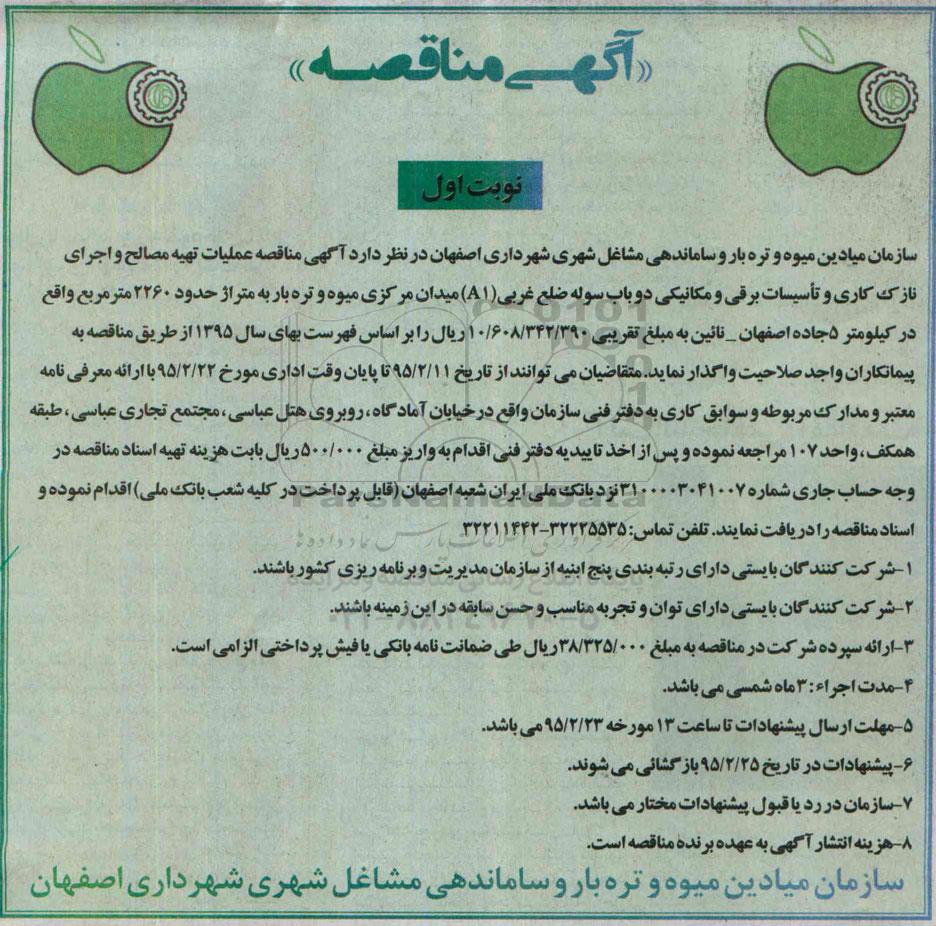 «آگهی مناقصه»
نوبت اول
سازمان میادین میوه و تره بار و ساماندهی مشاغل شهری شهرداری اصفهان در نظر دارد آگهی مناقصه عملیات تهیه مصالح و اجرای
نازک کاری و تأسیسات برقی و مکانیکی دو باب سوله ضلع غربی (A1) میدان مرکزی میوه و تره بار به متراژ حدود ۲۲۶۰ مترمربع واقع
در کیلومتر ۵ جاده اصفهان _ نائین به مبلغ تقریبی ۱۰/۶۰۸/۳۴۲/۳۹۰ ریال را بر اساس فهرست بهای سال ۱۳۹۵ از طریق مناقصه به
پیمانکاران واجد صلاحیت واگذار نماید. متقاضیان می توانند از تاریخ ۹۵/۲/۱۱ تا پایان وقت اداری مورخ ۹۵/۲/۲۲ با ارائه معرفی نامه
معتبر و مدارک مربوطه و سوابق کاری به دفتر فنی سازمان واقع در خیابان آمادگاه، روبروی هتل عباسی، مجتمع تجاری عباسی، طبقه
همکف، واحد ۱۰۷ مراجعه نموده و پس از اخذ تاییدیه دفتر فنی اقدام به واریز مبلغ ۵۰۰/۰۰۰ ریال بابت هزینه تهیه اسناد مناقصه در
وجه حساب جاری شماره ۳۱۰۰۰۰۳۰۴۱۰۰۷ نزد بانک ملی ایران شعبه اصفهان (قابل پرداخت در کلیه شعب بانک ملی) اقدام نموده و
اسناد مناقصه را دریافت نمایند. تلفن تماس: ۳۲۲۲۵۵۳۵-۳۲۲۱۱۴۴۲
۱-شرکت کنندگان بایستی دارای رتبه بندی پنج ابنیه از سازمان مدیریت و برنامه ریزی کشور باشند.
۲-شرکت کنندگان بایستی دارای توان و تجربه مناسب و حسن سابقه در این زمینه باشند.
۳-ارائه سپرده شرکت در مناقصه به مبلغ ۳۸/۳۲۵/۰۰۰ ریال طی ضمانت نامه بانکی یا فیش پرداختی الزامی است.
۴-مدت اجراء: ۳ ماه شمسی می باشد.
۵-مهلت ارسال پیشنهادات تا ساعت ۱۳ مورخه ۹۵/۲/۲۳ می باشد.
۶-پیشنهادات در تاریخ ۹۵/۲/۲۵ بازگشائی می شوند.
۷-سازمان در رد یا قبول پیشنهادات مختار می باشد.
۸-هزینه انتشار آگهی به عهده برنده مناقصه است.
سازمان میادین میوه و تره بار و ساماندهی مشاغل شهری شهرداری اصفهان
ParsNamadData